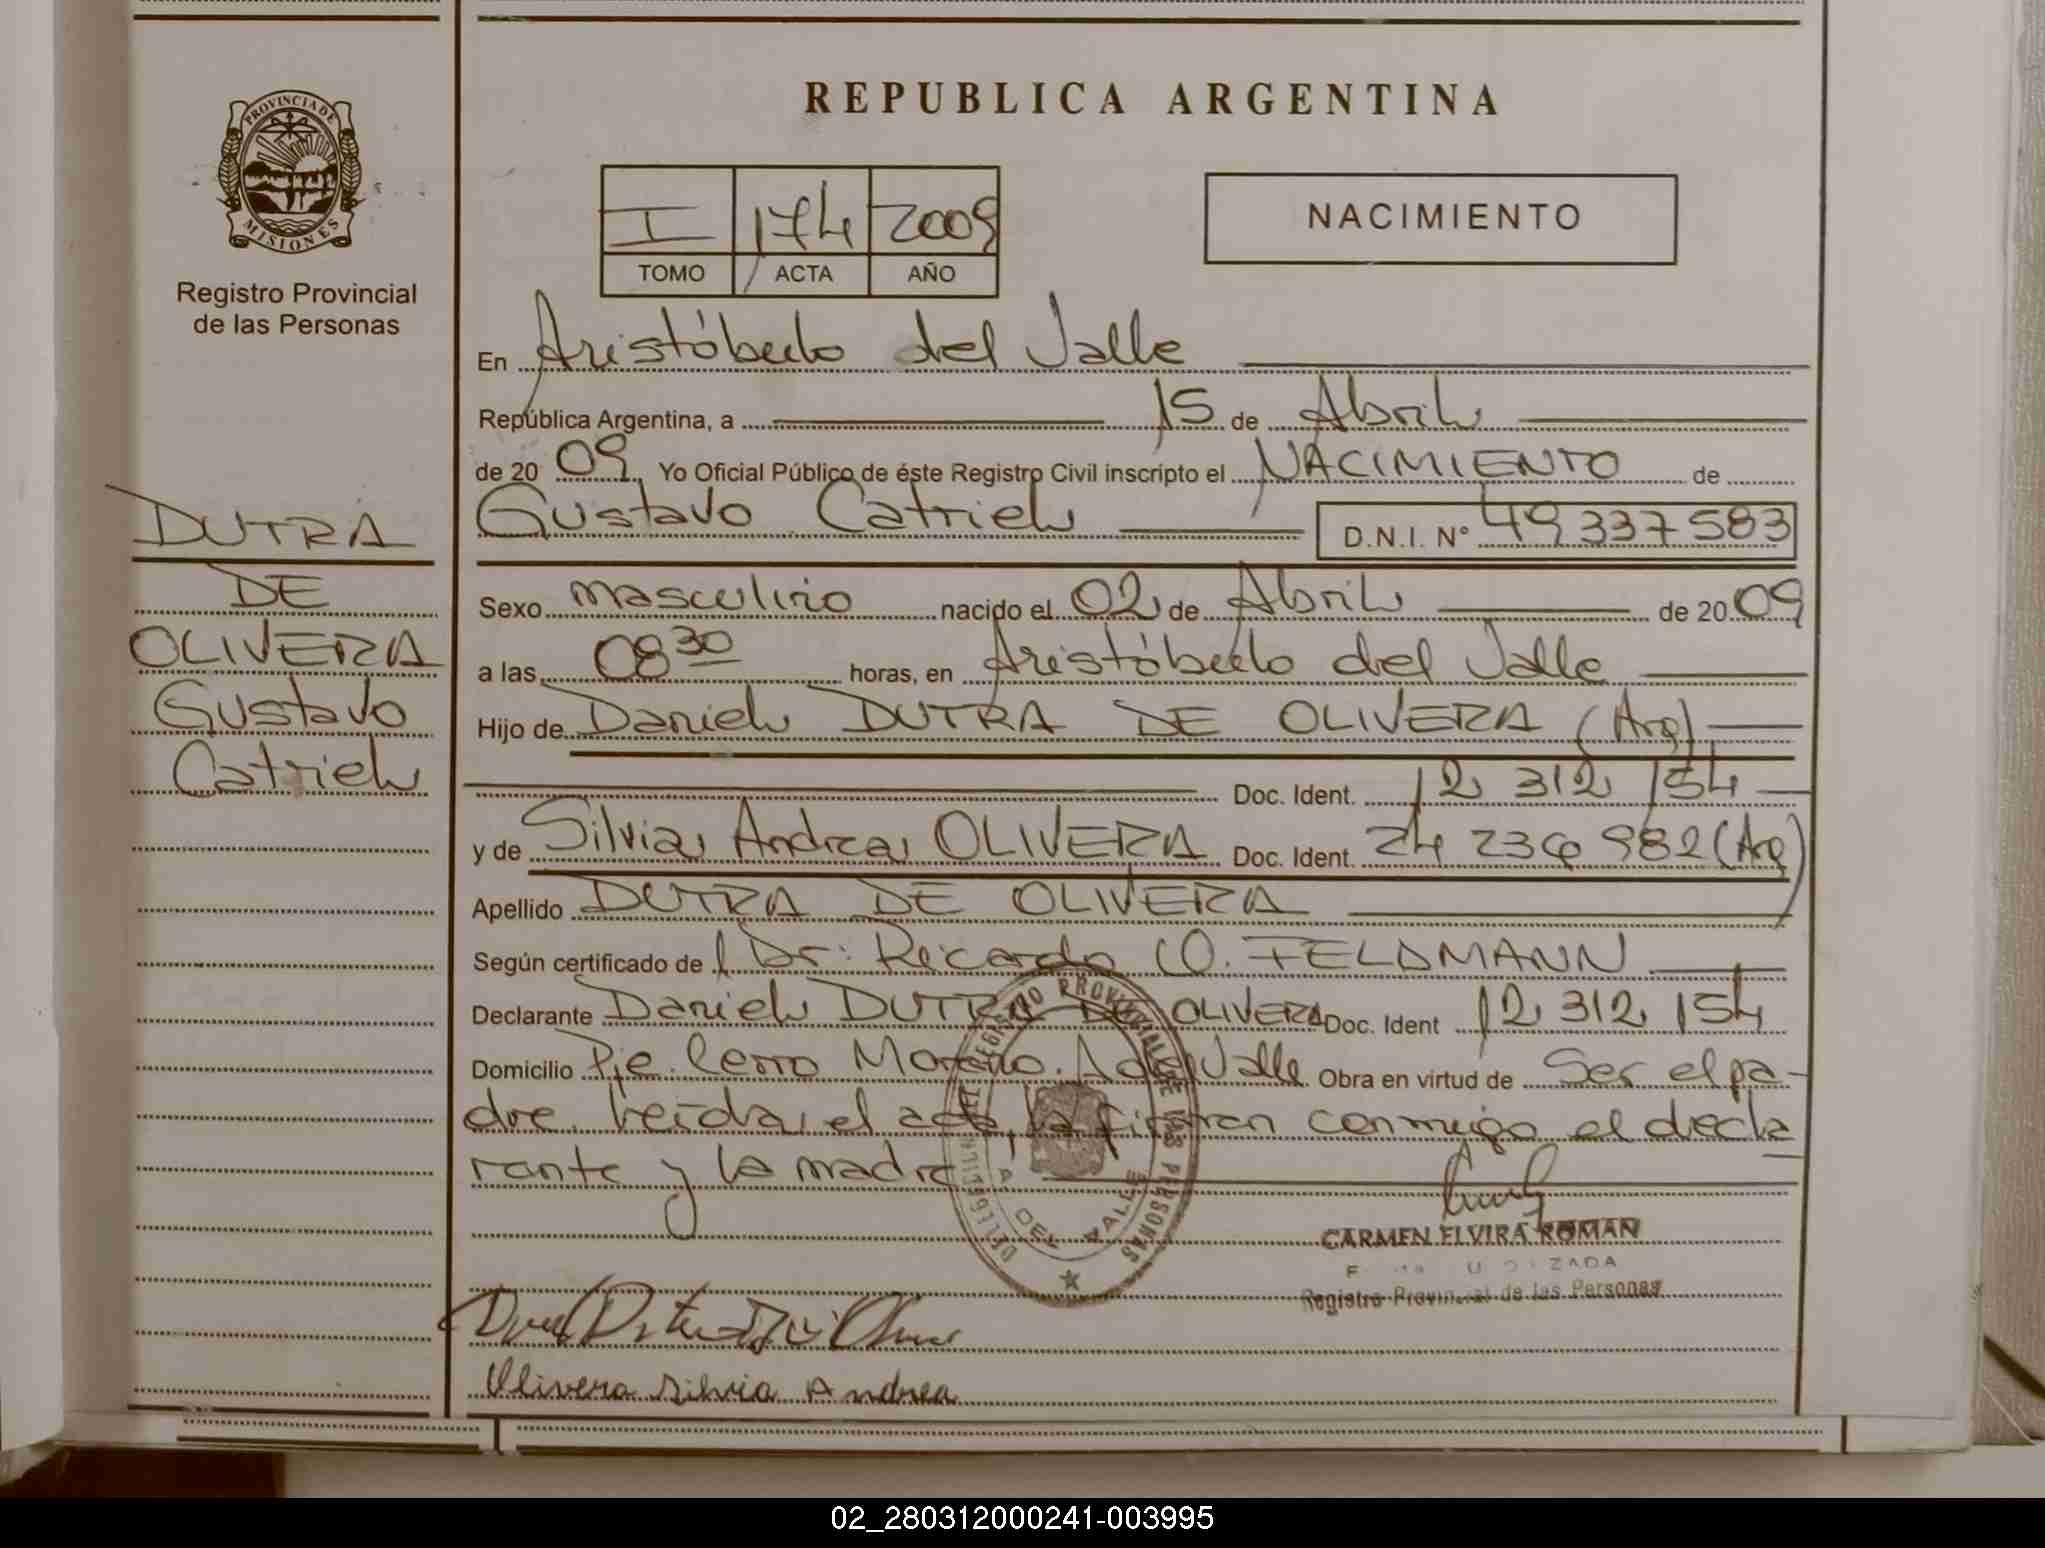 PROVINCIA DE
MISIONES
Registro Provincial
de las Personas
DUTRA
DE
OLIVERA
Gustavo
Catriel
REPUBLICA ARGENTINA
I 174 2009
TOMO ACTA AÑO
NACIMIENTO
En Aristóbulo del Valle
República Argentina, a 15 de Abril
de 2009 Yo Oficial Público de éste Registro Civil inscripto el NACIMIENTO de
Gustavo Catriel D.N.I. Nº 49 337 583
Sexo masculino nacido el 02 de Abril de 2009
a las 08 30 horas, en Aristóbulo del Valle
Hijo de Daniel DUTRA DE OLIVERA (Arg)
Doc. Ident. 12 312 154
y de Silvia Andrea OLIVERA Doc. Ident. 24 236 982 (Arg)
Apellido DUTRA DE OLIVERA
Según certificado de Dr: Ricardo O. FELDMANN
Declarante Daniel DUTRA DE OLIVERA Doc. Ident 12 312 154
Domicilio Pje. Cerro Moreno. A del Valle Obra en virtud de Ser el pa-
dre. Leída el acta, la firman conmigo el decla
rante y la madre
DELEGACION DEL REGISTRO PROVINCIAL DE LAS PERSONAS
A DEL VALLE
CARMEN ELVIRA ROMAN
Registro Provincial de las Personas
Olivera Silvia Andrea
02_280312000241-003995